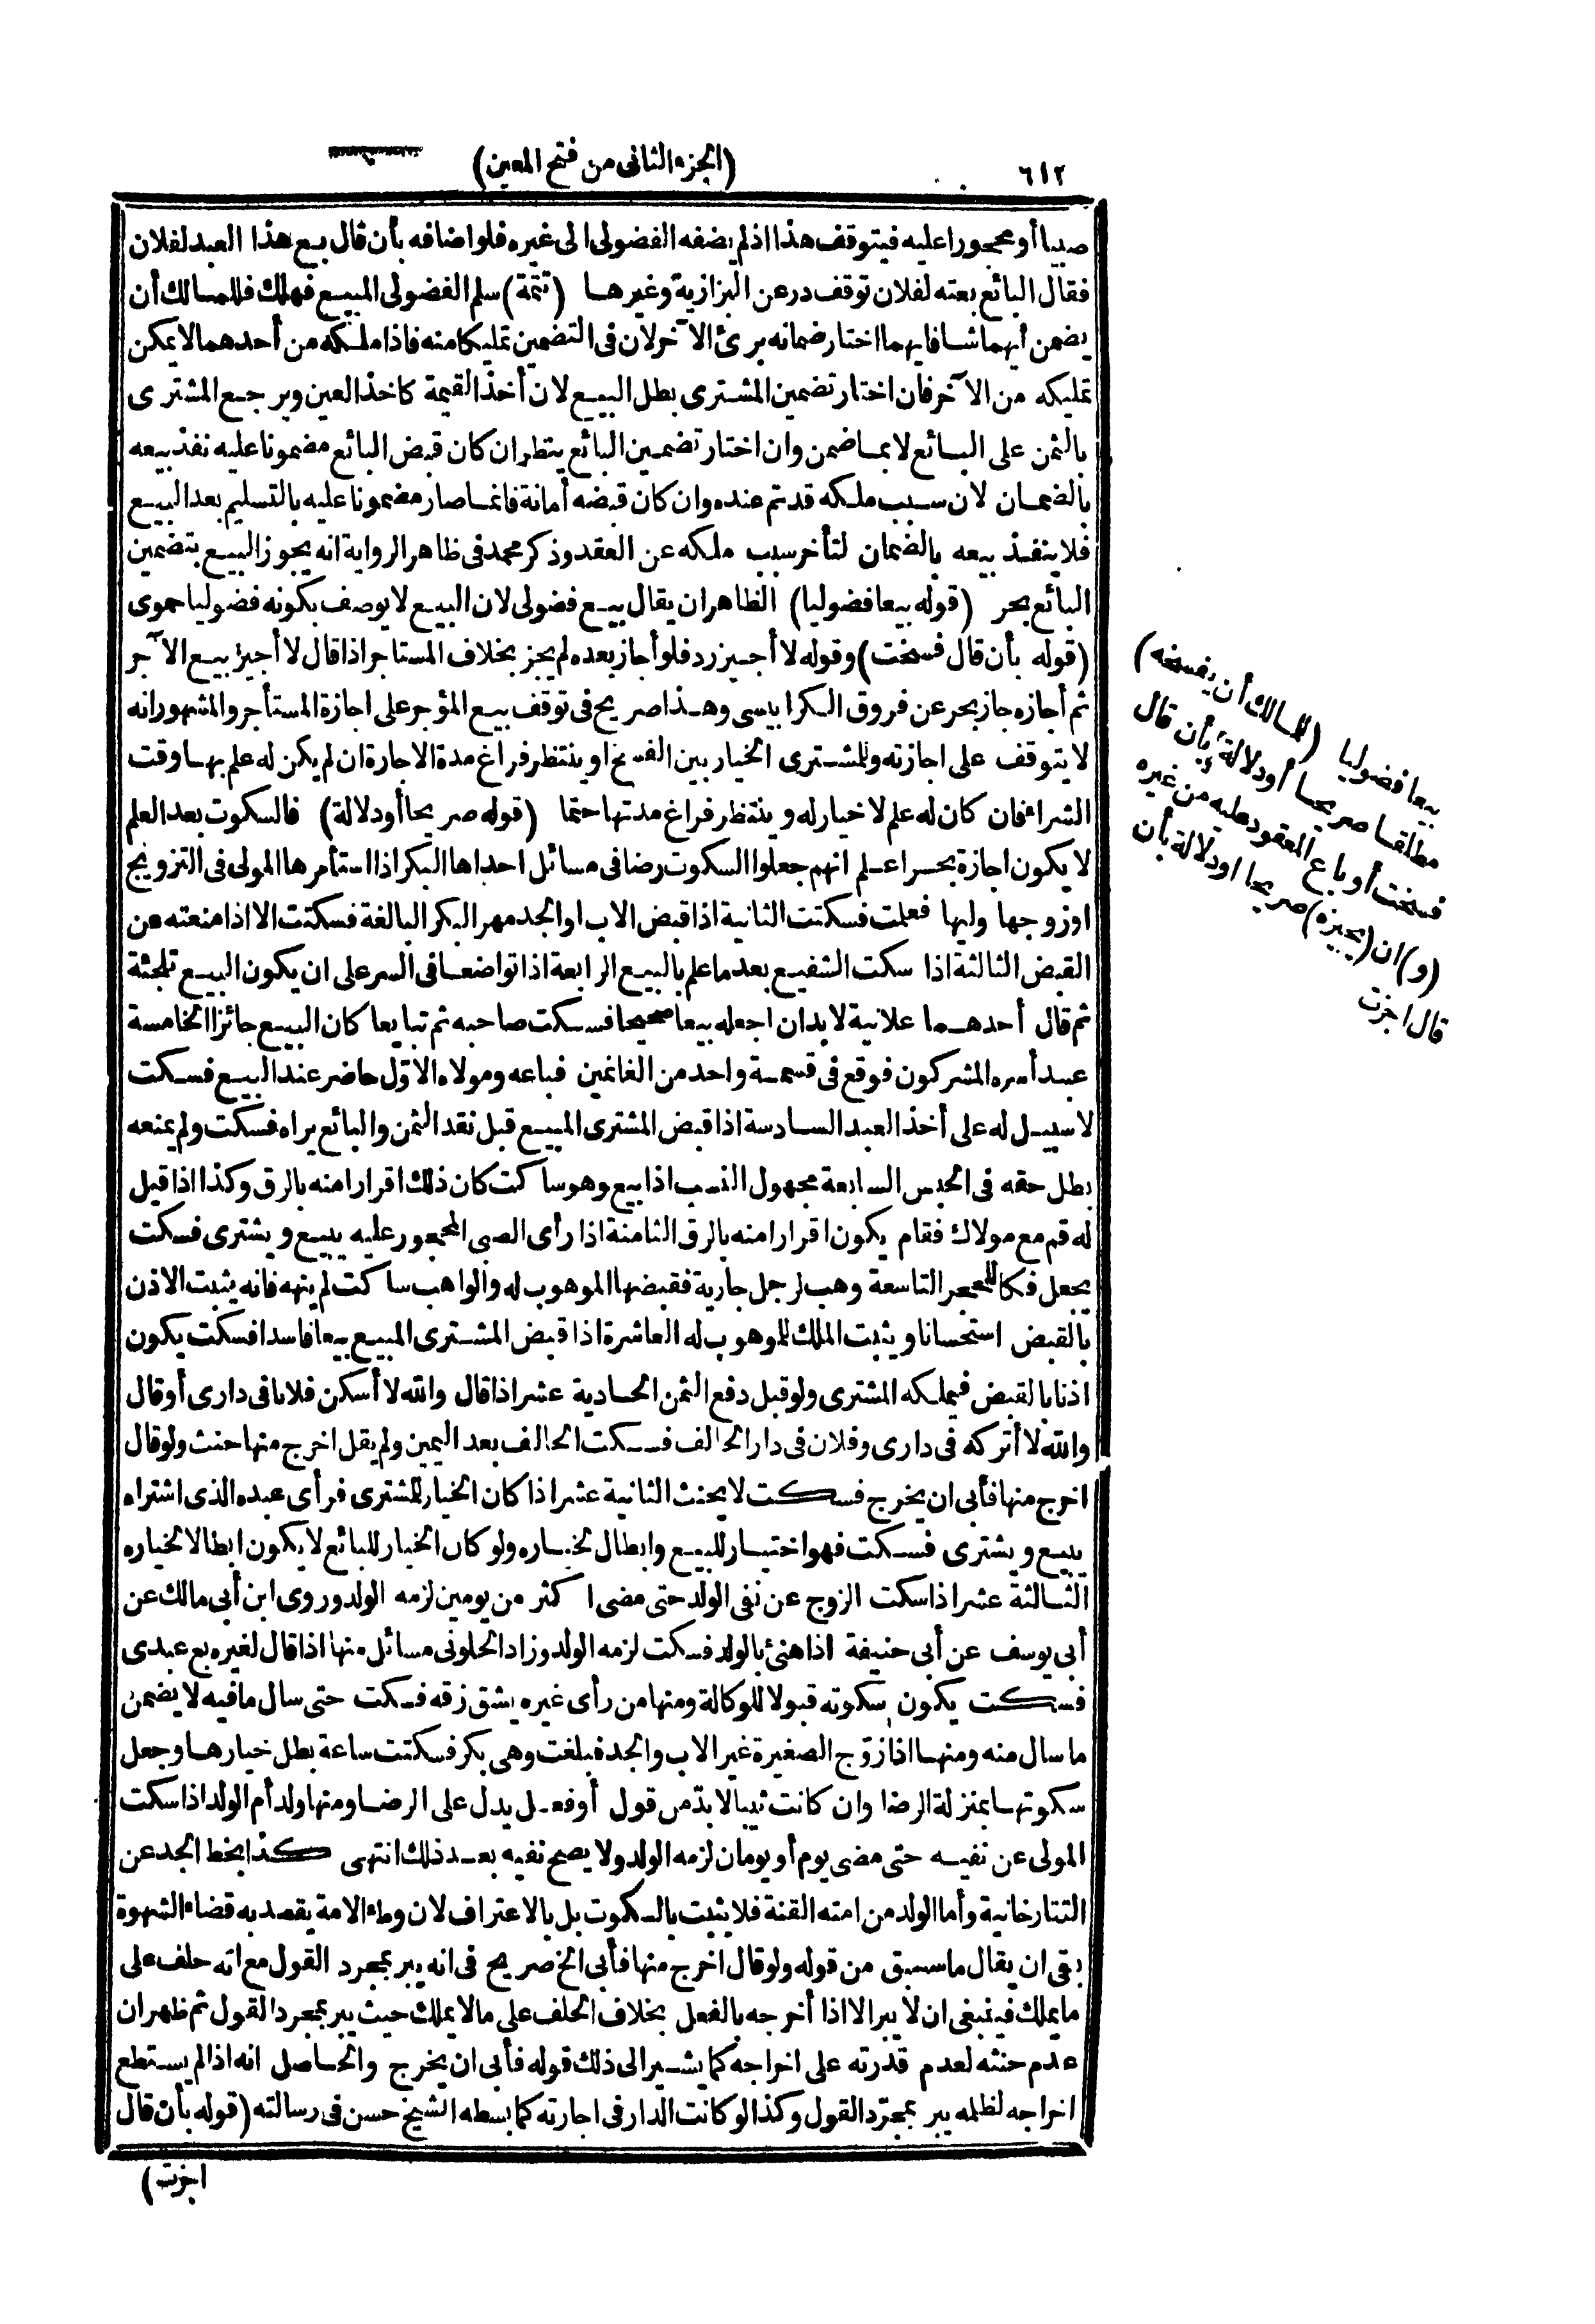 ٦١٢
(الجزء الثانى من فتح المعين)
صبيا أو محجورا عليه فيتوقف هذا اذ لم يضفه الفضولى الى غيره فلو اضافه بأن قال بع هذا العبد لفلان
فقال البائع بعته لفلان توقف در عن البزازية وغيرها (تتمة) سلم الفضولى المبيع فهلك فللمالك أن
يضمن أيهما شا فايهما اختار ضمانه برئ الآخر لان فى التضمين تمليكا منه فاذا ملكه من أحدهما لا يمكن
تمليكه من الآخر فان اختار تضمين المشترى بطل البيع لان أخذ القيمة كاخذ العين ويرجع المشترى
بالثمن على البائع لا بما ضمن وان اختار تضمين البائع ينظر ان كان قبض البائع مضمونا عليه نفذ بيعه
بالضمان لان سبب ملكه قد تم عنده وان كان قبضه أمانة فانما صار مضمونا عليه بالتسليم بعد البيع
فلا ينفذ بيعه بالضمان لتأخر سبب ملكه عن العقد وذكر محمد فى ظاهر الرواية انه يجوز البيع بتضمين
البائع بحر (قوله بيعا فضوليا) الظاهر ان يقال بيع فضولى لان البيع لا يوصف بكونه فضوليا حموى
(قوله بأن قال فسخت) وقوله لا أجيز رد فلو أجاز بعده لم يجز بخلاف المستاجر اذا قال لا أجيز بيع الآجر
ثم أجازه جاز بحر عن فروق الكرابيسى وهذا صريح فى توقف بيع المؤجر على اجازة المستأجر والمشهور انه
لا يتوقف على اجازته وللمشترى الخيار بين الفسخ او ينتظر فراغ مدة الاجارة ان لم يكن له علم بها وقت
الشراء فان كان له علم لا خيار له وينتظر فراغ مدتها حتما (قوله صريحا أو دلالة) فالسكوت بعد العلم
لا يكون اجازة بحر اعلم انهم جعلوا السكوت رضا فى مسائل احداها البكر اذا استأمرها المولى فى التزويج
او زوجها وليها فعلمت فسكتت الثانية اذا قبض الاب او الجد مهر البكر البالغة فسكتت الا اذا منعته عن
القبض الثالثة اذا سكت الشفيع بعد ما علم بالبيع الرابعة اذا تواضعا فى السر على ان يكون البيع تلجئة
ثم قال أحدهما علانية لا بد ان اجعله بيعا صحيحا فسكت صاحبه ثم تبايعا كان البيع جائزا الخامسة
عبد أسره المشركون فوقع فى قسمة واحد من الغانمين فباعه ومولاه الاوّل حاضر عند البيع فسكت
لا سبيل له على أخذ العبد السادسة اذا قبض المشترى المبيع قبل نقد الثمن والبائع يراه فسكت ولم يمنعه
بطل حقه فى الحبس السابعة مجهول النسب اذا بيع وهو ساكت كان ذلك اقرارا منه بالرق وكذا اذا قيل
له قم مع مولاك فقام يكون اقرارا منه بالرق الثامنة اذا رأى الصبى المحجور عليه يبيع ويشترى فسكت
يجعل فكا للحجر التاسعة وهب لرجل جارية فقبضها الموهوب له والواهب ساكت لم ينهه فانه يثبت الاذن
بالقبض استحسانا ويثبت الملك للموهوب له العاشرة اذا قبض المشترى المبيع بيعا فاسدا فسكت يكون
اذنا بالقبض فيملكه المشترى ولو قبل دفع الثمن الحادية عشر اذا قال والله لا أسكن فلانا فى دارى أو قال
والله لا أتركه فى دارى وفلان فى دار الحالف فسكت الحالف بعد اليمين ولم يقل اخرج منها حنث ولو قال
اخرج منها فأبى ان يخرج فسكت لا يحنث الثانية عشر اذا كان الخيار للمشترى فرأى عبده الذى اشتراه
يبيع ويشترى فسكت فهو اختيار للبيع وابطال لخياره ولو كان الخيار للبائع لا يكون ابطالا لخياره
الثالثة عشر اذا سكت الزوج عن نفى الولد حتى مضى اكثر من يومين لزمه الولد وروى ابن أبى مالك عن
أبى يوسف عن أبى حنيفة اذا هنئ بالولد فسكت لزمه الولد وزاد الحلونى مسائل منها اذا قال لغيره بع عبدى
فسكت يكون سكوته قبولا للوكالة ومنها من رأى غيره يشق زقه فسكت حتى سال ما فيه لا يضمن
ما سال منه ومنها اذا زوّج الصغيرة غير الاب والجد فبلغت وهى بكر فسكتت ساعة بطل خيارها وجعل
سكوتها بمنزلة الرضا وان كانت ثيبا لا بدّ من قول أو فعل يدل على الرضا ومنها ولد أم الولد اذا سكت
المولى عن نفيه حتى مضى يوم أو يومان لزمه الولد ولا يصح نفيه بعد ذلك انتهى كذا بخط الجد عن
التتارخانية وأما الولد من امته القنة فلا يثبت بالسكوت بل بالاعتراف لان وطء الامة يقصد به قضاء الشهوة
بقى ان يقال ما سبق من قوله ولو قال اخرج منها فأبى الخ صريح فى انه يبر بمجرد القول مع انه حلف على
ما يملك فينبغى ان لا يبر الا اذا أخرجه بالفعل بخلاف الحلف على ما لا يملك حيث يبر بمجرد القول ثم ظهر ان
عدم حنثه لعدم قدرته على اخراجه كما يشير الى ذلك قوله فأبى ان يخرج والحاصل انه اذا لم يستطع
اخراجه لظلمه يبر بمجرّد القول وكذا لو كانت الدار فى اجارته كما بسطه الشيخ حسن فى رسالته (قوله بأن قال
اجزت)
بيعا فضوليا (للمالك أن يفسخه)
مطلقا صريحا أو دلالة بأن قال
فسخت أو باع المعقود عليه من غيره
(و) ان (يجيزه) صريحا او دلالة بأن
قال اجزت